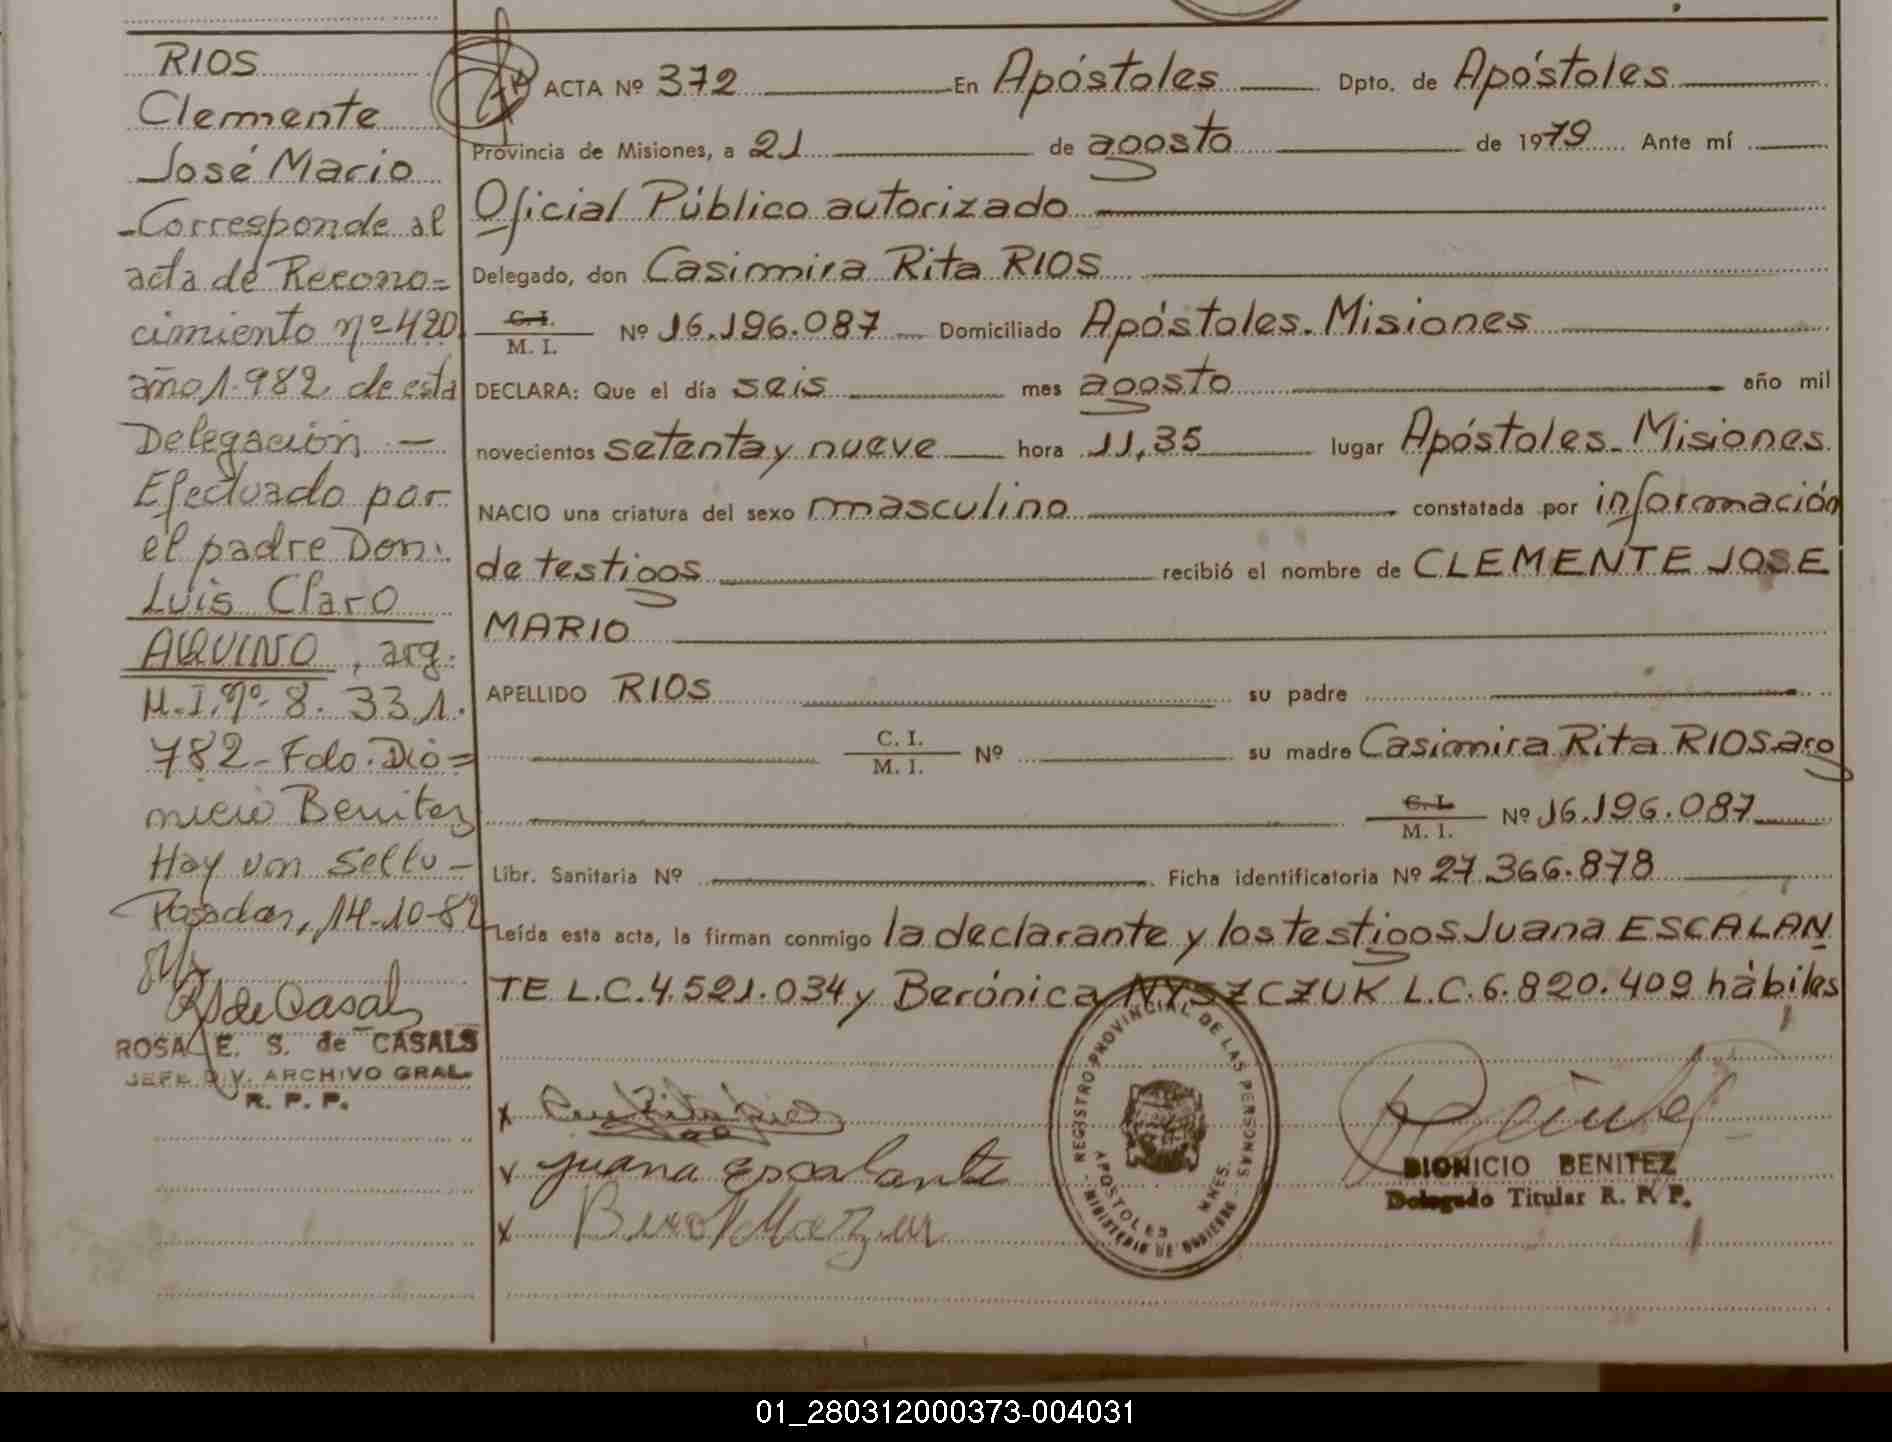 RIOS
Clemente
José Mario
-Corresponde al
acta de Recono=
cimiento nº 420
año 1.982 de esta
Delegación —
Efectuado por
el padre Don:
Luis Claro
AQUINO, arg.
M.I. Nº- 8. 331.
782 - Fdo. Dio=
nicio Benitez
Hay un sello -
Posadas, 14-10-82
RS de Casals
ROSA E. S. de CASALS
JEFE DIV. ARCHIVO GRAL.
R. P. P.
ACTA Nº 372 En Apóstoles Dpto. de Apóstoles
Provincia de Misiones, a 21 de agosto de 1979 Ante mí
Oficial Público autorizado
Delegado, don Casimira Rita RIOS
C. I. / M. I. Nº 16.196.087 Domiciliado Apóstoles. Misiones
DECLARA: Que el día seis mes agosto año mil
novecientos setenta y nueve hora 11,35 lugar Apóstoles. Misiones.
NACIO una criatura del sexo masculino constatada por información
de testigos recibió el nombre de CLEMENTE JOSE
MARIO
APELLIDO RIOS su padre
C. I. / M. I. Nº su madre Casimira Rita RIOS arg
C. I. / M. I. Nº 16.196.087
Libr. Sanitaria Nº Ficha identificatoria Nº 27.366.878
Leída esta acta, la firman conmigo la declarante y los testigos Juana ESCALAN
TE L.C. 4.521.034 y Berónica NYSZCZUK L.C. 6.820.409 hábiles
x
x Juana Escalante
x
REGISTRO PROVINCIAL DE LAS PERSONAS
APOSTOLES MNES.
MINISTERIO DE GOBIERNO
DIONICIO BENITEZ
Delegado Titular R. P. P.
01_280312000373-004031